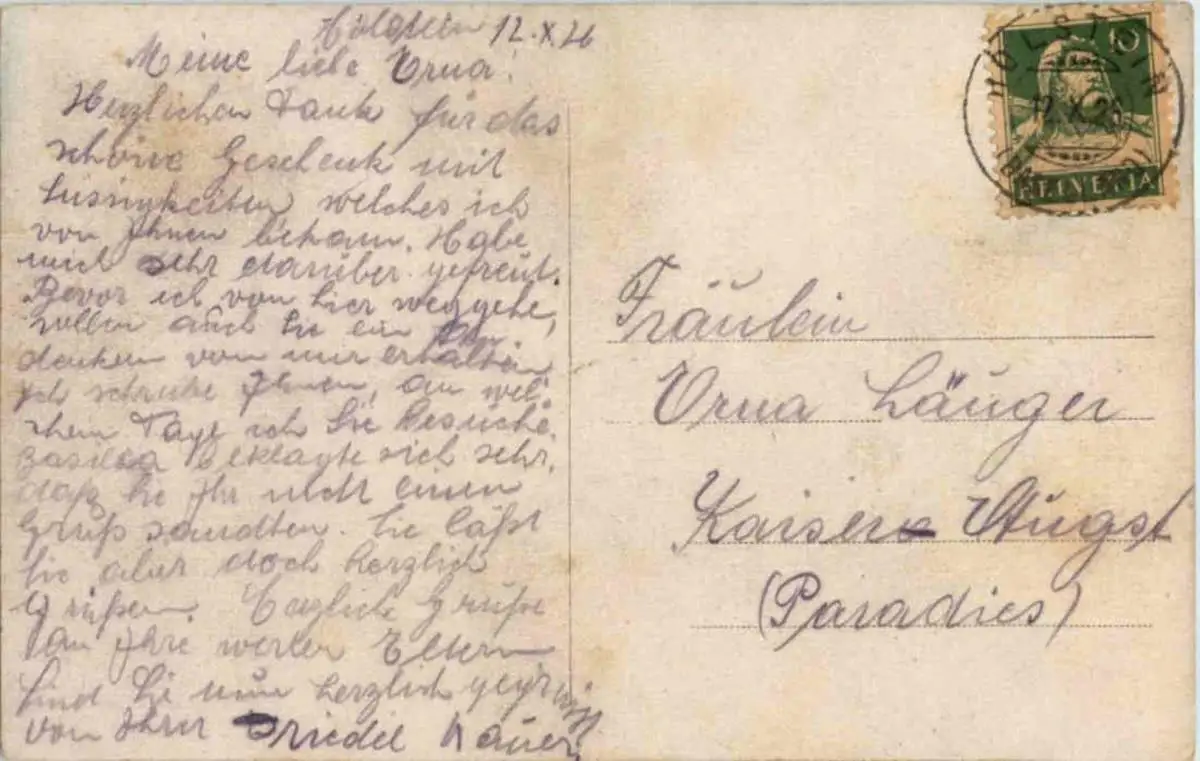 Hölstein 12.X.26
Meine liebe Erna!
Herzlichen Dank für das
schöne Geschenk mit
Süssigkeiten welches ich
von Ihnen bekam. Habe
mich sehr darüber gefreut.
Bevor ich von hier weggehe,
sollen auch Sie ein An
denken von mir erhalten
Ich schreibe Ihnen, an wel
chem Tage ich Sie besuche.
beklagte sich sehr,
daß Sie Ihr nicht einen
Gruß sandten. Sie läßt
Sie aber doch herzlich
Grüßen. Herzliche Grüße
an Ihre werten Eltern
Sind Sie nun herzlich gegrüßt
von Ihrer Friedel Hauer
HÖLSTEIN
12.X.26
10
HELVETIA
Fräulein
Erna Länger
Kaiser Augst
(Paradies)